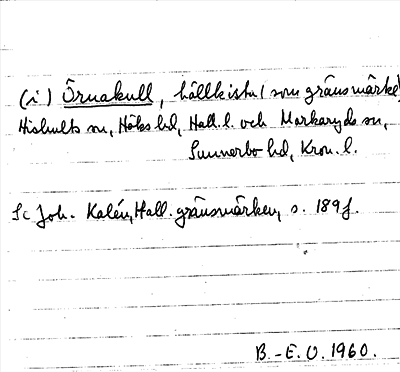 (i) Örnakull, hällkista (som gränsmärke)
Hishults sn, Höks hd, Hall. l. och Markaryds sn,
Sunnerbo hd, Kron. l.
Se Joh. Kalén, Hall. gränsmärken, s. 189 f.
B.-E. O. 1960.